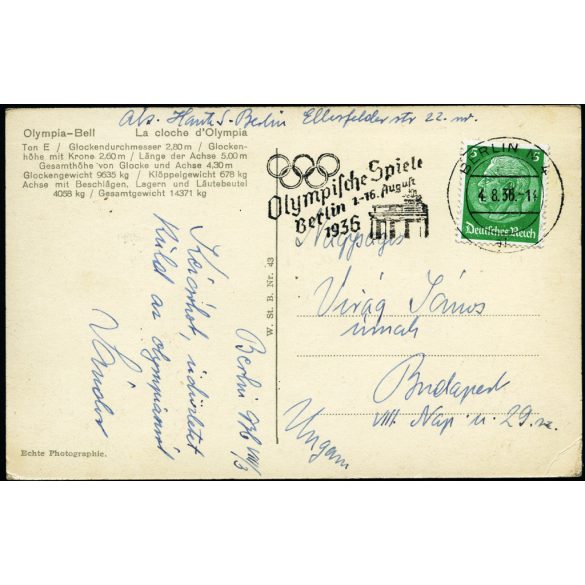 Abs. Berlin Ellerfelderstr 22.
Olympia-Bell La cloche d'Olympia
Ton E / Glockendurchmesser 2,80 m / Glocken-
höhe mit Krone 2,60 m / Länge der Achse 5,00 m
Gesamthöhe von Glocke und Achse 4,30 m
Glockengewicht 9635 kg / Klöppelgewicht 678 kg
Achse mit Beschlägen, Lagern und Läutebeutel
4058 kg / Gesamtgewicht 14371 kg
Olympische Spiele
Berlin 1.-16. August
1936
BERLIN
4.8.36.-14
5 5
Deutsches Reich
Nagyságos
Virág János
úrnak
Budapest
VIII. Nap u. 29.
Ungarn
W. St. B. Nr. 43
Berlin 936 VIII/3
üdvözletet
Küld az olympiáról
Sándor
Echte Photographie.